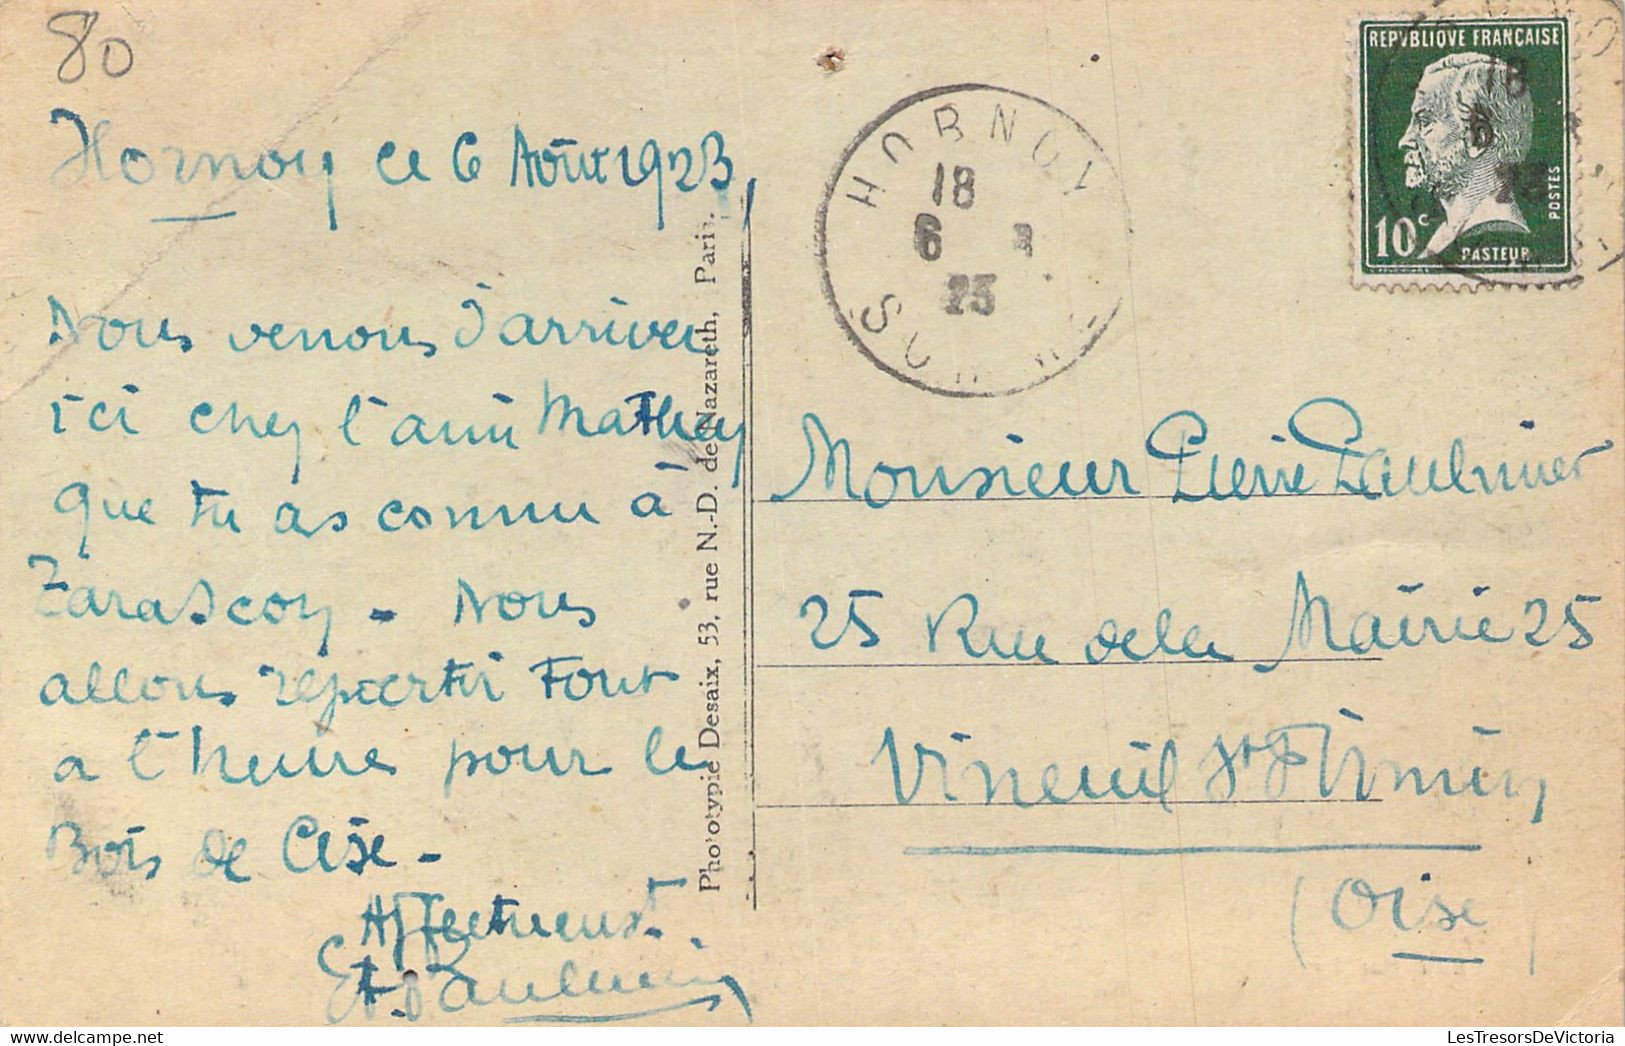 80
Hornoy ce 6 Août 1923
Nous venons d'arriver
ici chez l'ami Mathey
que tu as connu à
Tarascon - Nous
allons repartir tout
a l'heure pour le
Bois de Cise -
Affectueust
Paulmier
Phototypie Desaix, 53, rue N.-D. de Nazareth, Paris.
HORNOY
18
6 8
23
SOMME
REPVBLIQVE FRANÇAISE
18
6
10c
POSTES
PASTEUR
Monsieur Pierre Paulmier
25 Rue de la Mairie 25
Vineuil St Firmin
(Oise)
LesTresorsDeVictoria.com